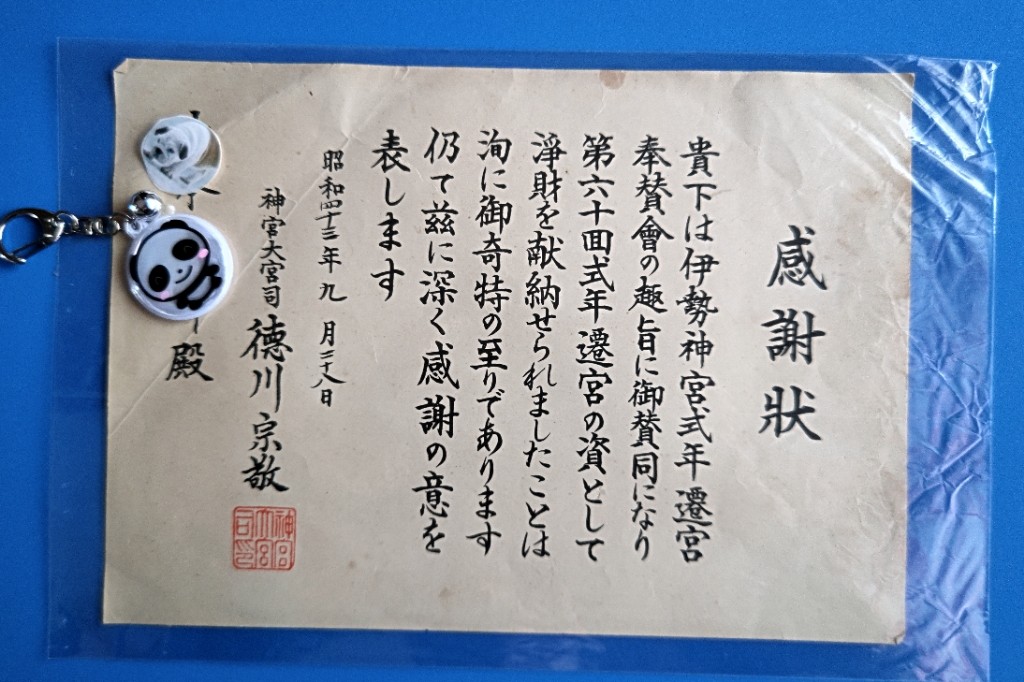 感謝狀
貴下は伊勢神宮式年遷宮
奉賛會の趣旨に御賛同になり
第六十回式年遷宮の資として
淨財を献納せられましたことは
洵に御奇特の至りであります
仍て茲に深く感謝の意を
表します
昭和四十三年九月二十八日
神宮大宮司 徳川宗敬
神宮大宮司印
殿